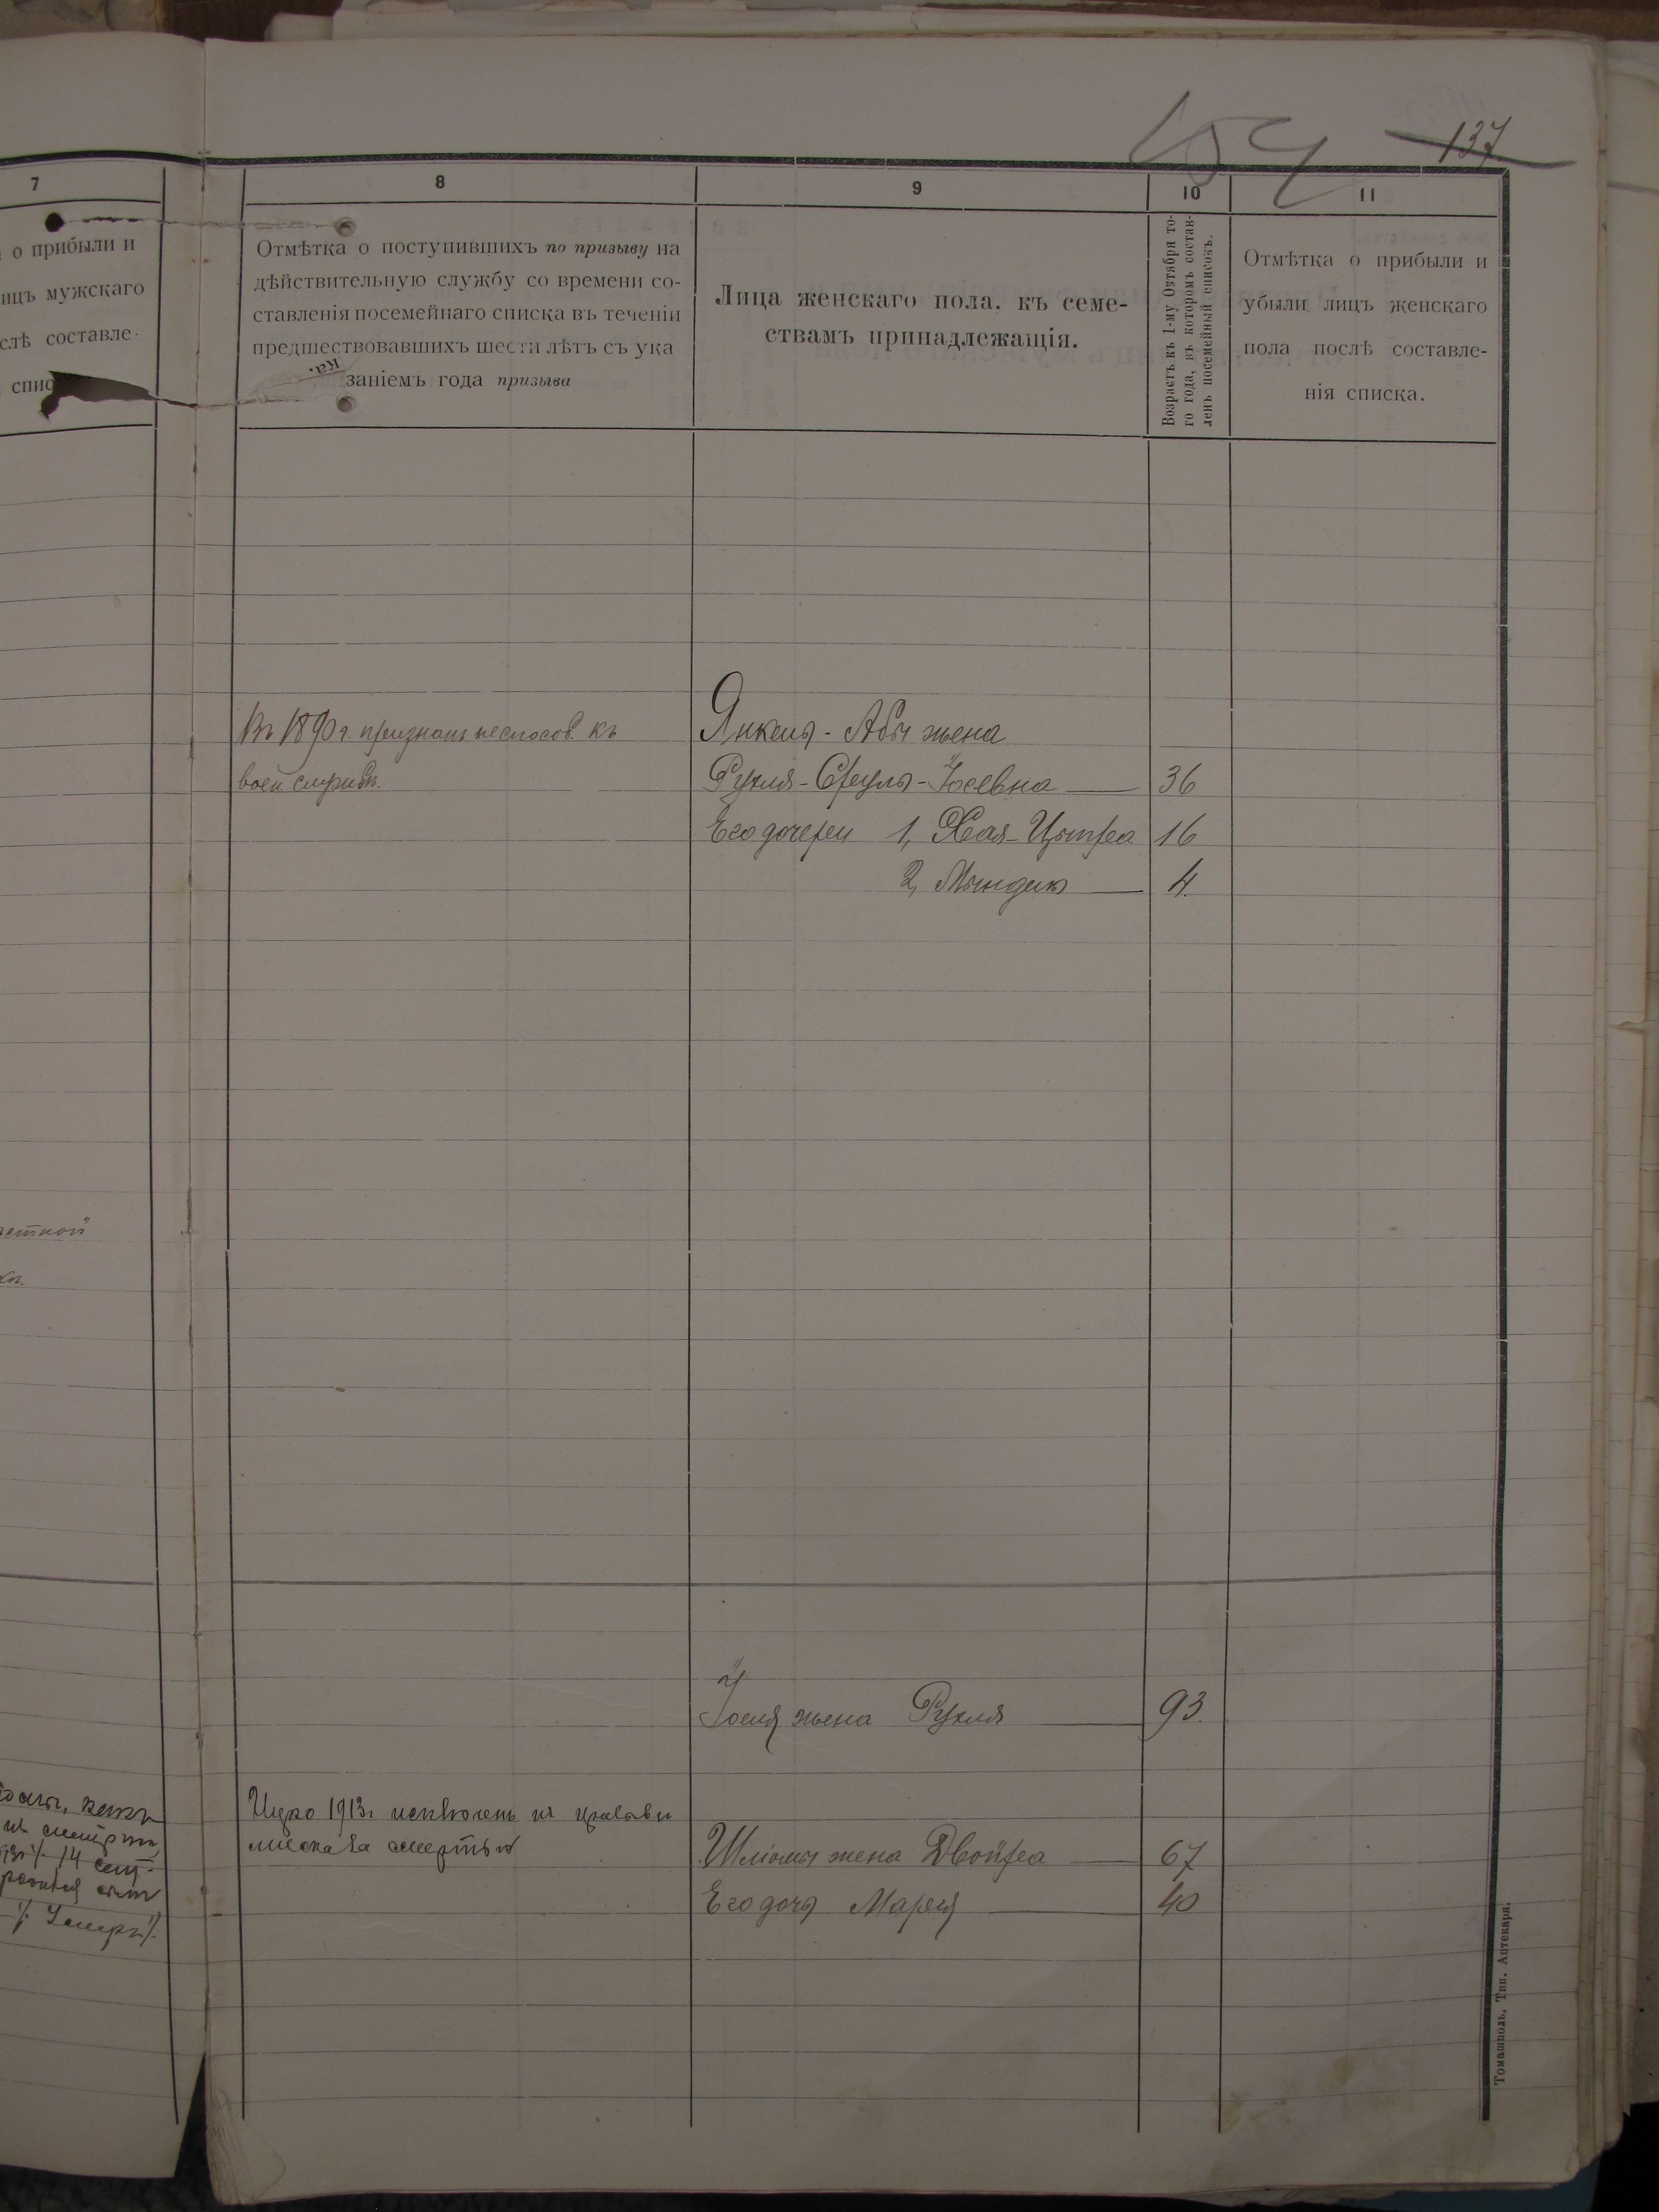 137
154
7
о прибыли и
ицъ мужскаго
слѣ составле-
спис
8
Отмѣтка о поступившихъ по призыву на
дѣйствительную службу со времени со-
ставленія посемейнаго списка въ теченіи
предшествовавшихъ шести лѣтъ съ ука
заніемъ года призыва
9
Лица женскаго пола, къ семе-
ствамъ принадлежащія.
10
Возрастъ къ 1-му Октября то-
го года, къ которомъ состав-
ленъ посемейный списокъ.
11
Отмѣтка о прибыли и
убыли лицъ женскаго
пола послѣ составле-
нія списка.
Въ 1890 г. признанъ неспособ. къ
воен службѣ.
Янкеля - Абы жена
Рухля - Сруля - Іосевна 36
Его дочери 1, Хая - Цытра 16
2, Мындля 4.
Іоселя жена Рухля 93.
Ицко 1913 г исключенъ изъ
списка за смертью
Шлiомы жена Двойра 67
Его дочь Марья 40
14 сент.
Умеръ
Томашполь, Тип. Аптекаря.